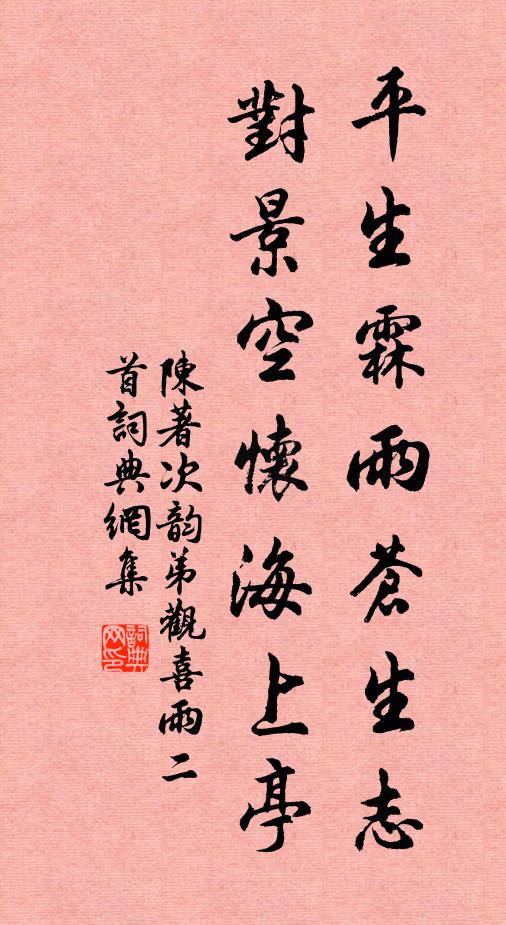 平生霖雨蒼生志
對景空懷海上亭
陳著次韵弟觀喜雨二
首詞典網集
詞典
网印